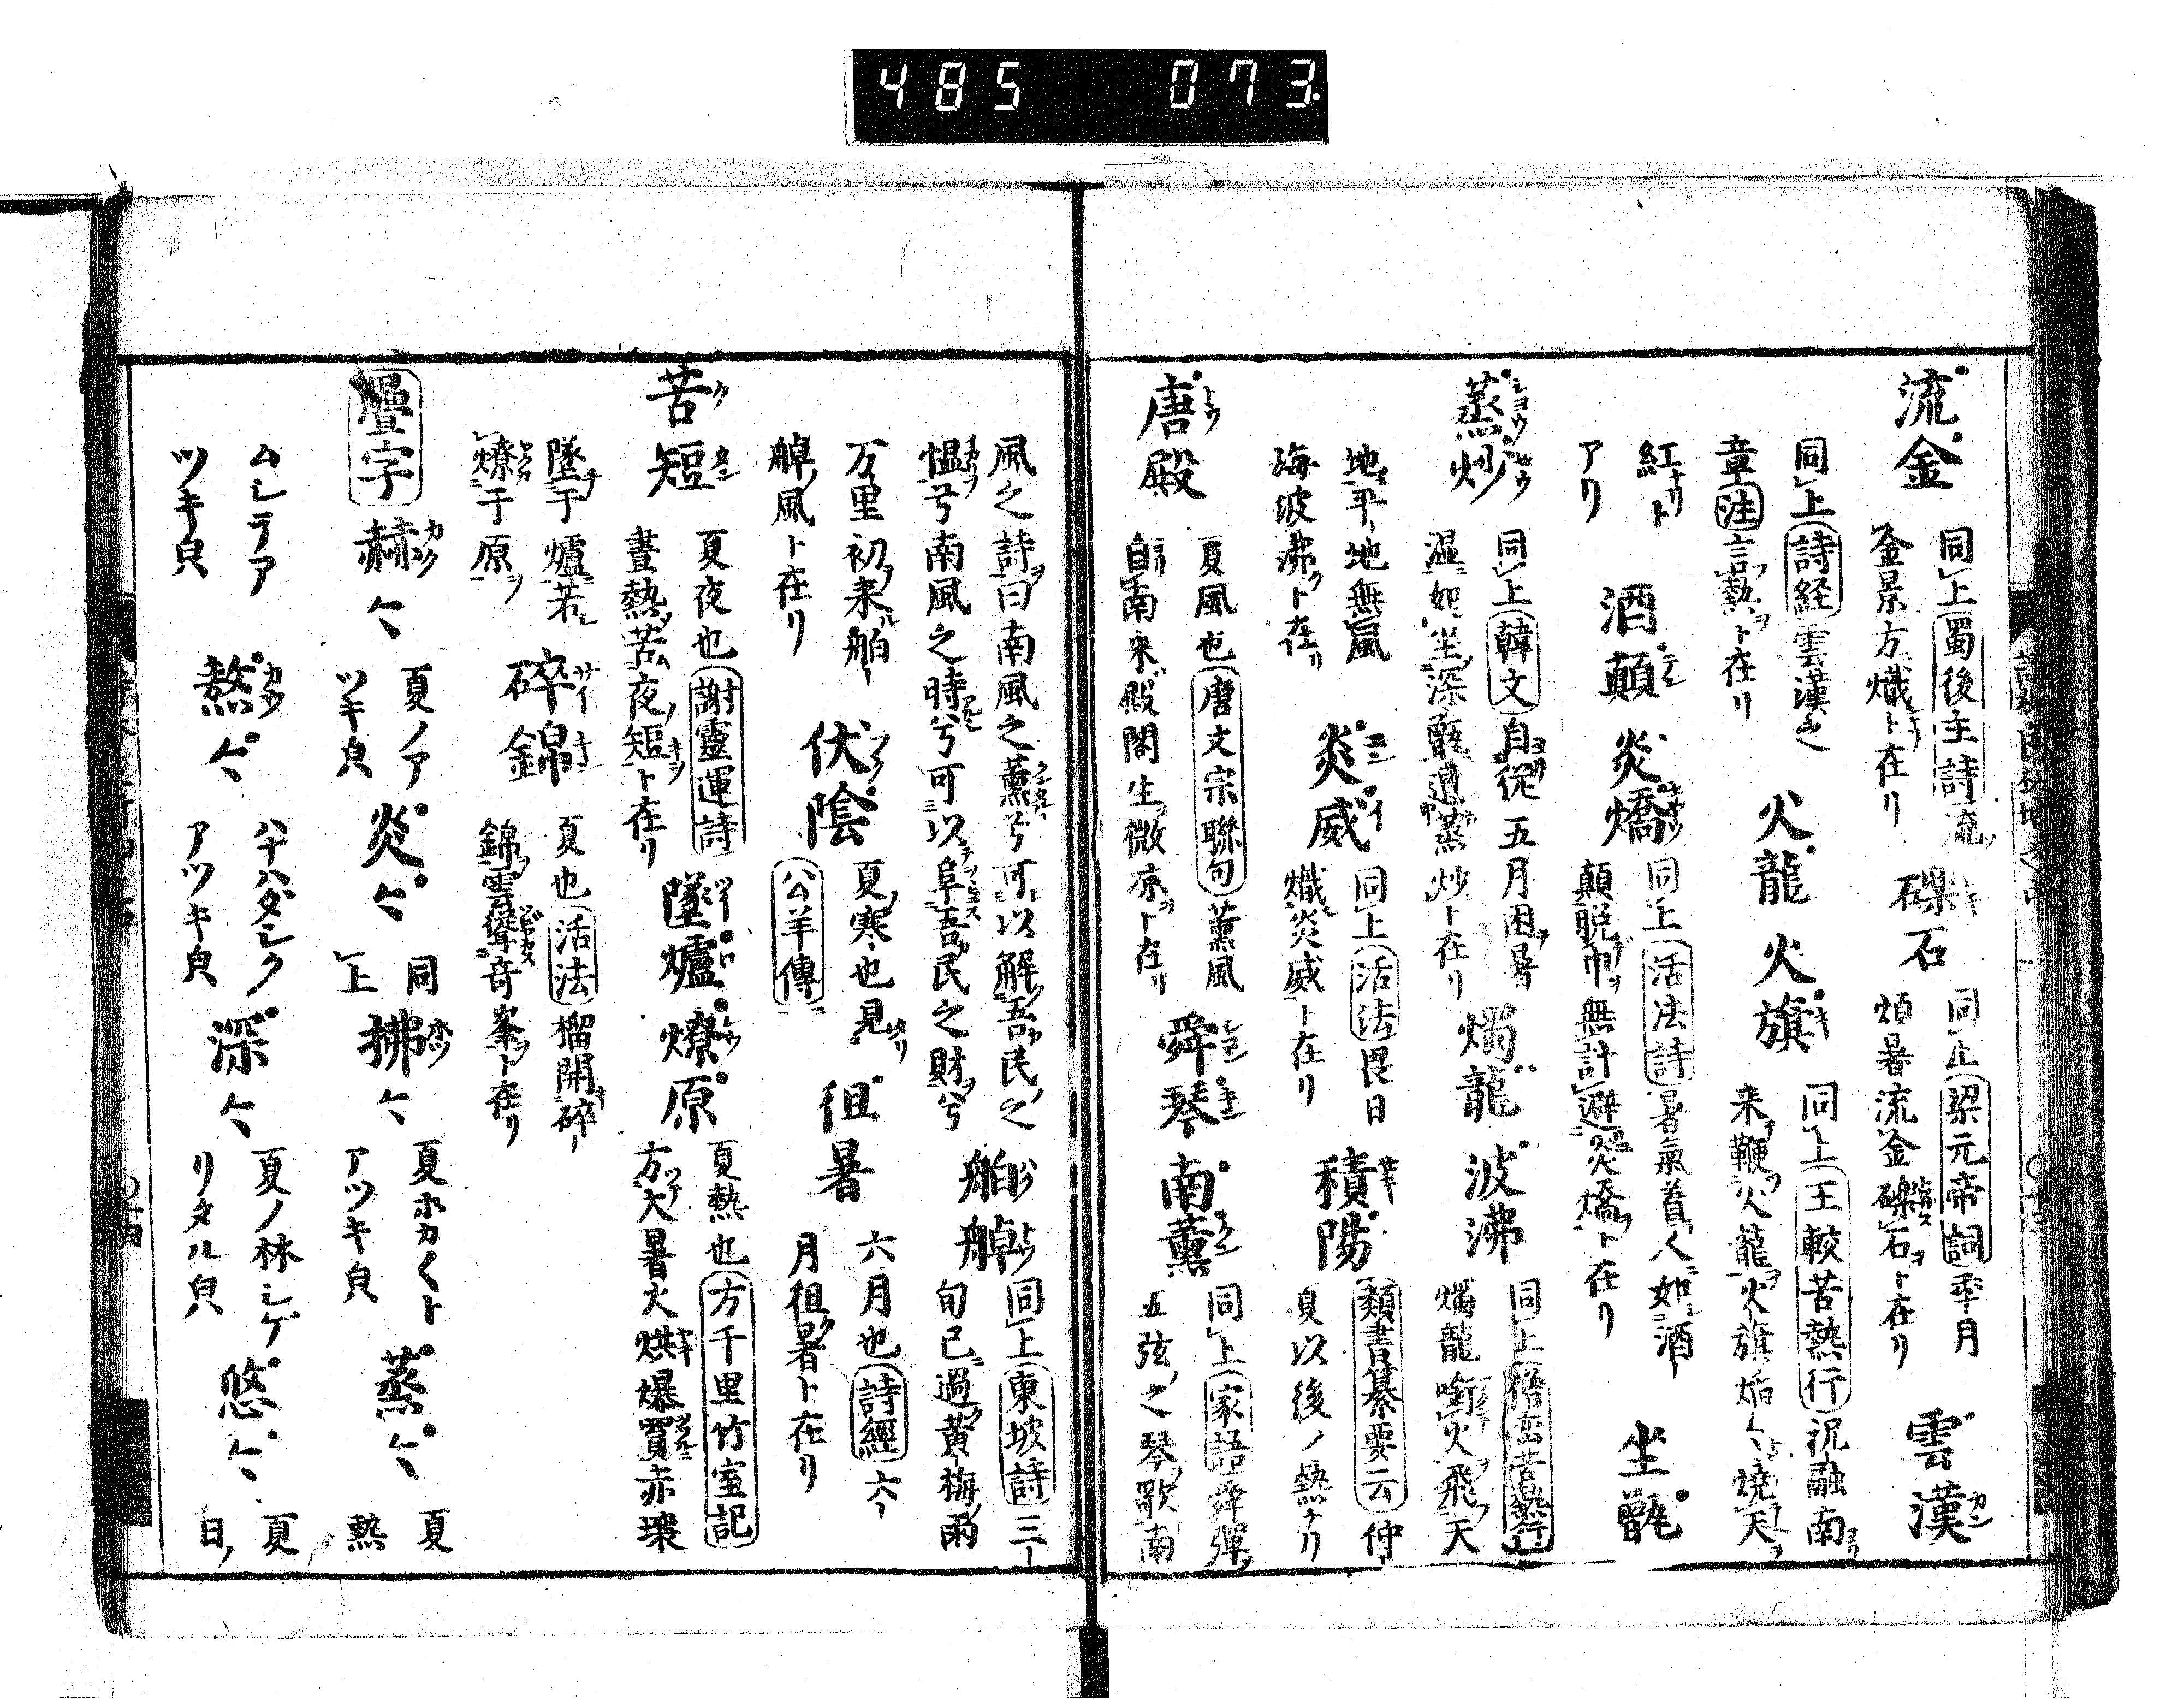 485 073
流金 同上 蜀後主詩 流金景方熾ト在リ 礫石 同上 梁元帝詞 季月煩暑流金礫石ト在リ 雲漢
同上 詩経 雲漢之章 注 言熱ト在リ 火龍 火旗 同上 王轂苦熱行 祝融南来鞭火龍火旗焔〻燒天
紅ナリトアリ 酒顛 炎熇 同上 活法詩 暑氣着人如酒顛脱巾無計避炎熇ト在リ 坐甑
蒸炒 同上 韓文 自從五月困暑湿如坐深甑遭蒸炒ト在リ 燭龍 波沸 同上 燭龍啣火飛天
地平地無風海波沸ト在リ 炎威 同上 活法 畏日熾炎威ト在リ 積陽 類書纂要云 仲夏以後ノ熱ナリ
唐殿 夏風也 唐文宗聯句 薫風自南来殿閣生微凉ト在リ 舜琴 南薫 同上 家語 舜彈五弦之琴歌南
風之詩曰南風之薫兮可以解吾民之慍兮南風之時兮可以阜吾民之財兮 舶䑲 同上 東坡詩 三旬已過黄梅雨
万里初来舶䑲風ト在リ 伏陰 夏寒也見 公羊傳 徂暑 六月也 詩經 六月徂暑ト在リ
苦短 夏夜也 謝靈運詩 晝熱苦夜短ト在リ 墜爐 燎原 夏熱也 方千里竹室記 方大暑火烘爆買赤壤
墜于爐若燎于原 碎錦 夏也 活法 榴開碎錦雲聳奇峯ト在リ
疊字 赫〻 夏ノアツキ皃 炎〻 同上 拂〻 夏ホカ〱トアツキ皃 蒸〻 夏熱
ムシテアツキ皃 熬〻 ハナハダシクアツキ皃 深〻 夏ノ林シゲリタル皃 悠〻 夏日ノ